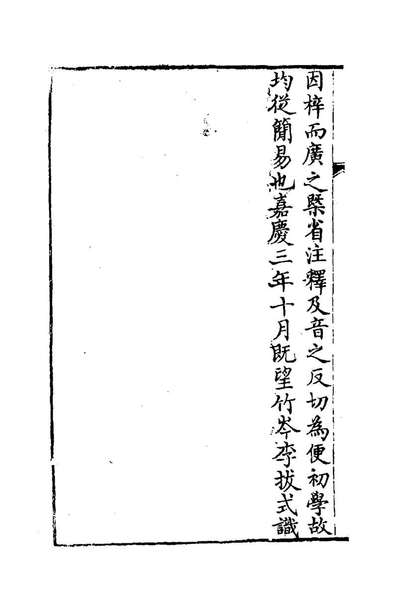 因梓而廣之槩省注釋及音之反切為便初學故
均從簡易也嘉慶三年十月既望竹岑李拔式識